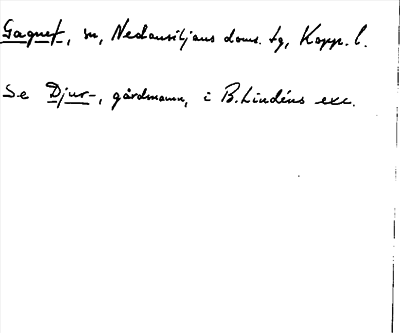 Gagnef, sn, Nedansiljans doms. tg, Kopp. l.
Se Djur-, gårdmann, i B. Lindéns exc.